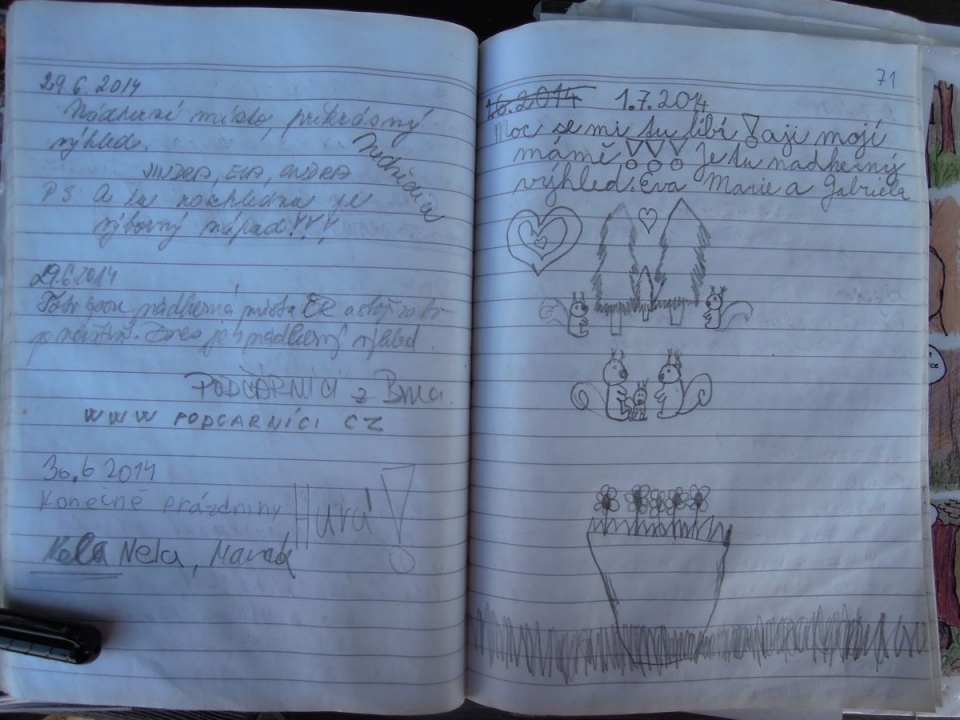 29.6.2014
Nádherné místo, překrásný
výhled.
JINDRA, EVA, ONDRA
PS A ta rozhledna je
výborný nápad!!!
29.6.2014
nádherná místa ČR a stojí za to
je nádherný výhled.
PODČÁRNÍCI z Brna.
WWW PODCARNÍCI CZ
30.6 2014
Konečně prázdniny Hurá!
Nela Nela, Marek
71
1.6.2014 1.7.2014
Moc se mi tu líbí! aji mojí
mámě!!! Je tu nádherný
výhled: Eva Marie a Gabriela